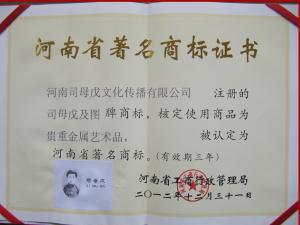 河南省著名商标证书
河南司母戊文化传播有限公司 注册的
司母戊及图 牌商标，核定使用商品为
贵重金属艺术品， 被认定为
河南省著名商标。(有效期三年)
河南省工商行政管理局
二〇一二年十二月三十一日